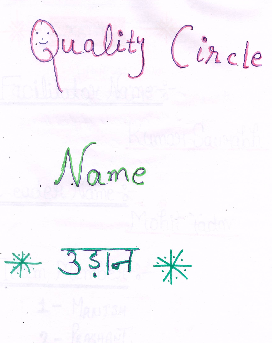 Quality Circle
Name
* उड़ान *